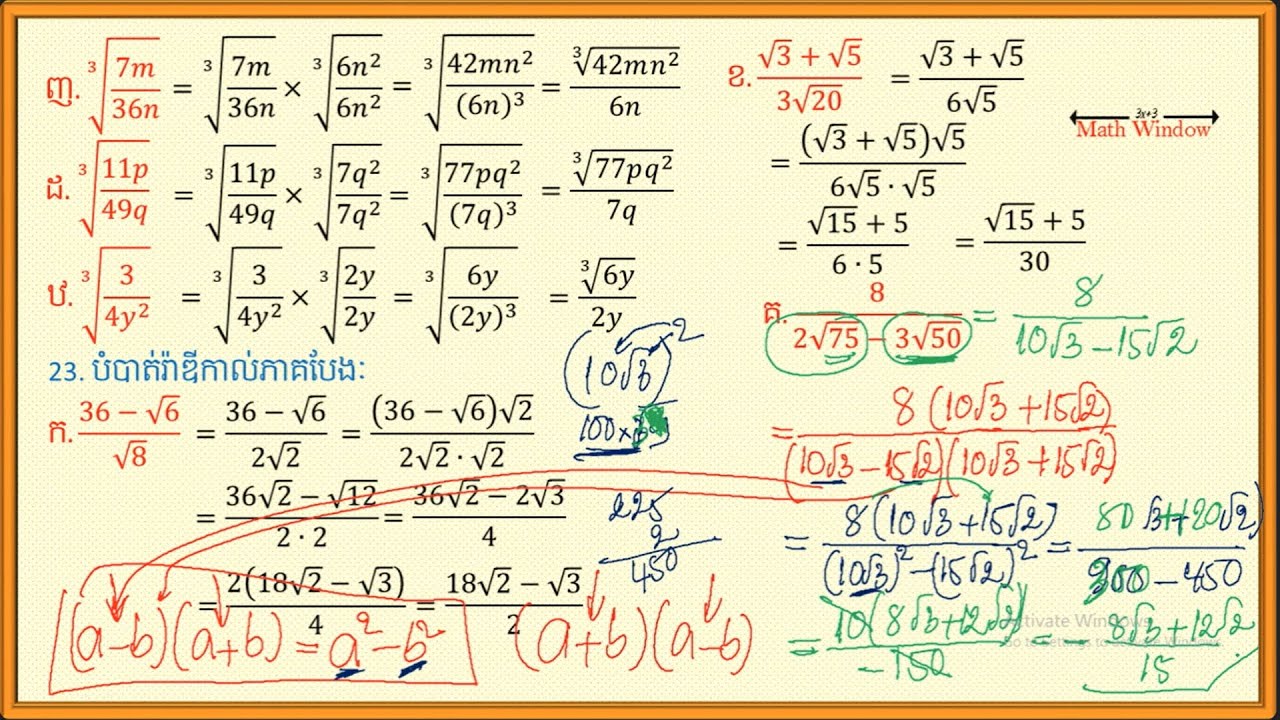 ញ. ∛(7m/36n) = ∛(7m/36n) × ∛(6n²/6n²) = ∛(42mn²/(6n)³) = ∛(42mn²)/6n
ដ. ∛(11p/49q) = ∛(11p/49q) × ∛(7q²/7q²) = ∛(77pq²/(7q)³) = ∛(77pq²)/7q
ឋ. ∛(3/4y²) = ∛(3/4y²) × ∛(2y/2y) = ∛(6y/(2y)³) = ∛(6y)/2y
23. បំបាត់រ៉ាឌីកាល់ភាគបែង:
ក. (36 − √6)/√8 = (36 − √6)/2√2 = (36 − √6)√2/(2√2 · √2)
= (36√2 − √12)/(2 · 2) = (36√2 − 2√3)/4
= 2(18√2 − √3)/4 = (18√2 − √3)/2
(a−b)(a+b) = a² − b²
(a+b)(a−b)
(10√3)²
100×3
225
2
450
ខ. (√3 + √5)/3√20 = (√3 + √5)/6√5
3x+3
Math Window
= (√3 + √5)√5/(6√5 · √5)
= (√15 + 5)/(6 · 5) = (√15 + 5)/30
គ. 8/(2√75 − 3√50) = 8/(10√3 − 15√2)
= 8(10√3 + 15√2)/(10√3 − 15√2)(10√3 + 15√2)
= 8(10√3 + 15√2)/((10√3)² − (15√2)²) = (80√3 + 120√2)/(300 − 450)
= 10(8√3 + 12√2)/−150 = − (8√3 + 12√2)/15
Activate Windows
Go to Settings to activate Windows.